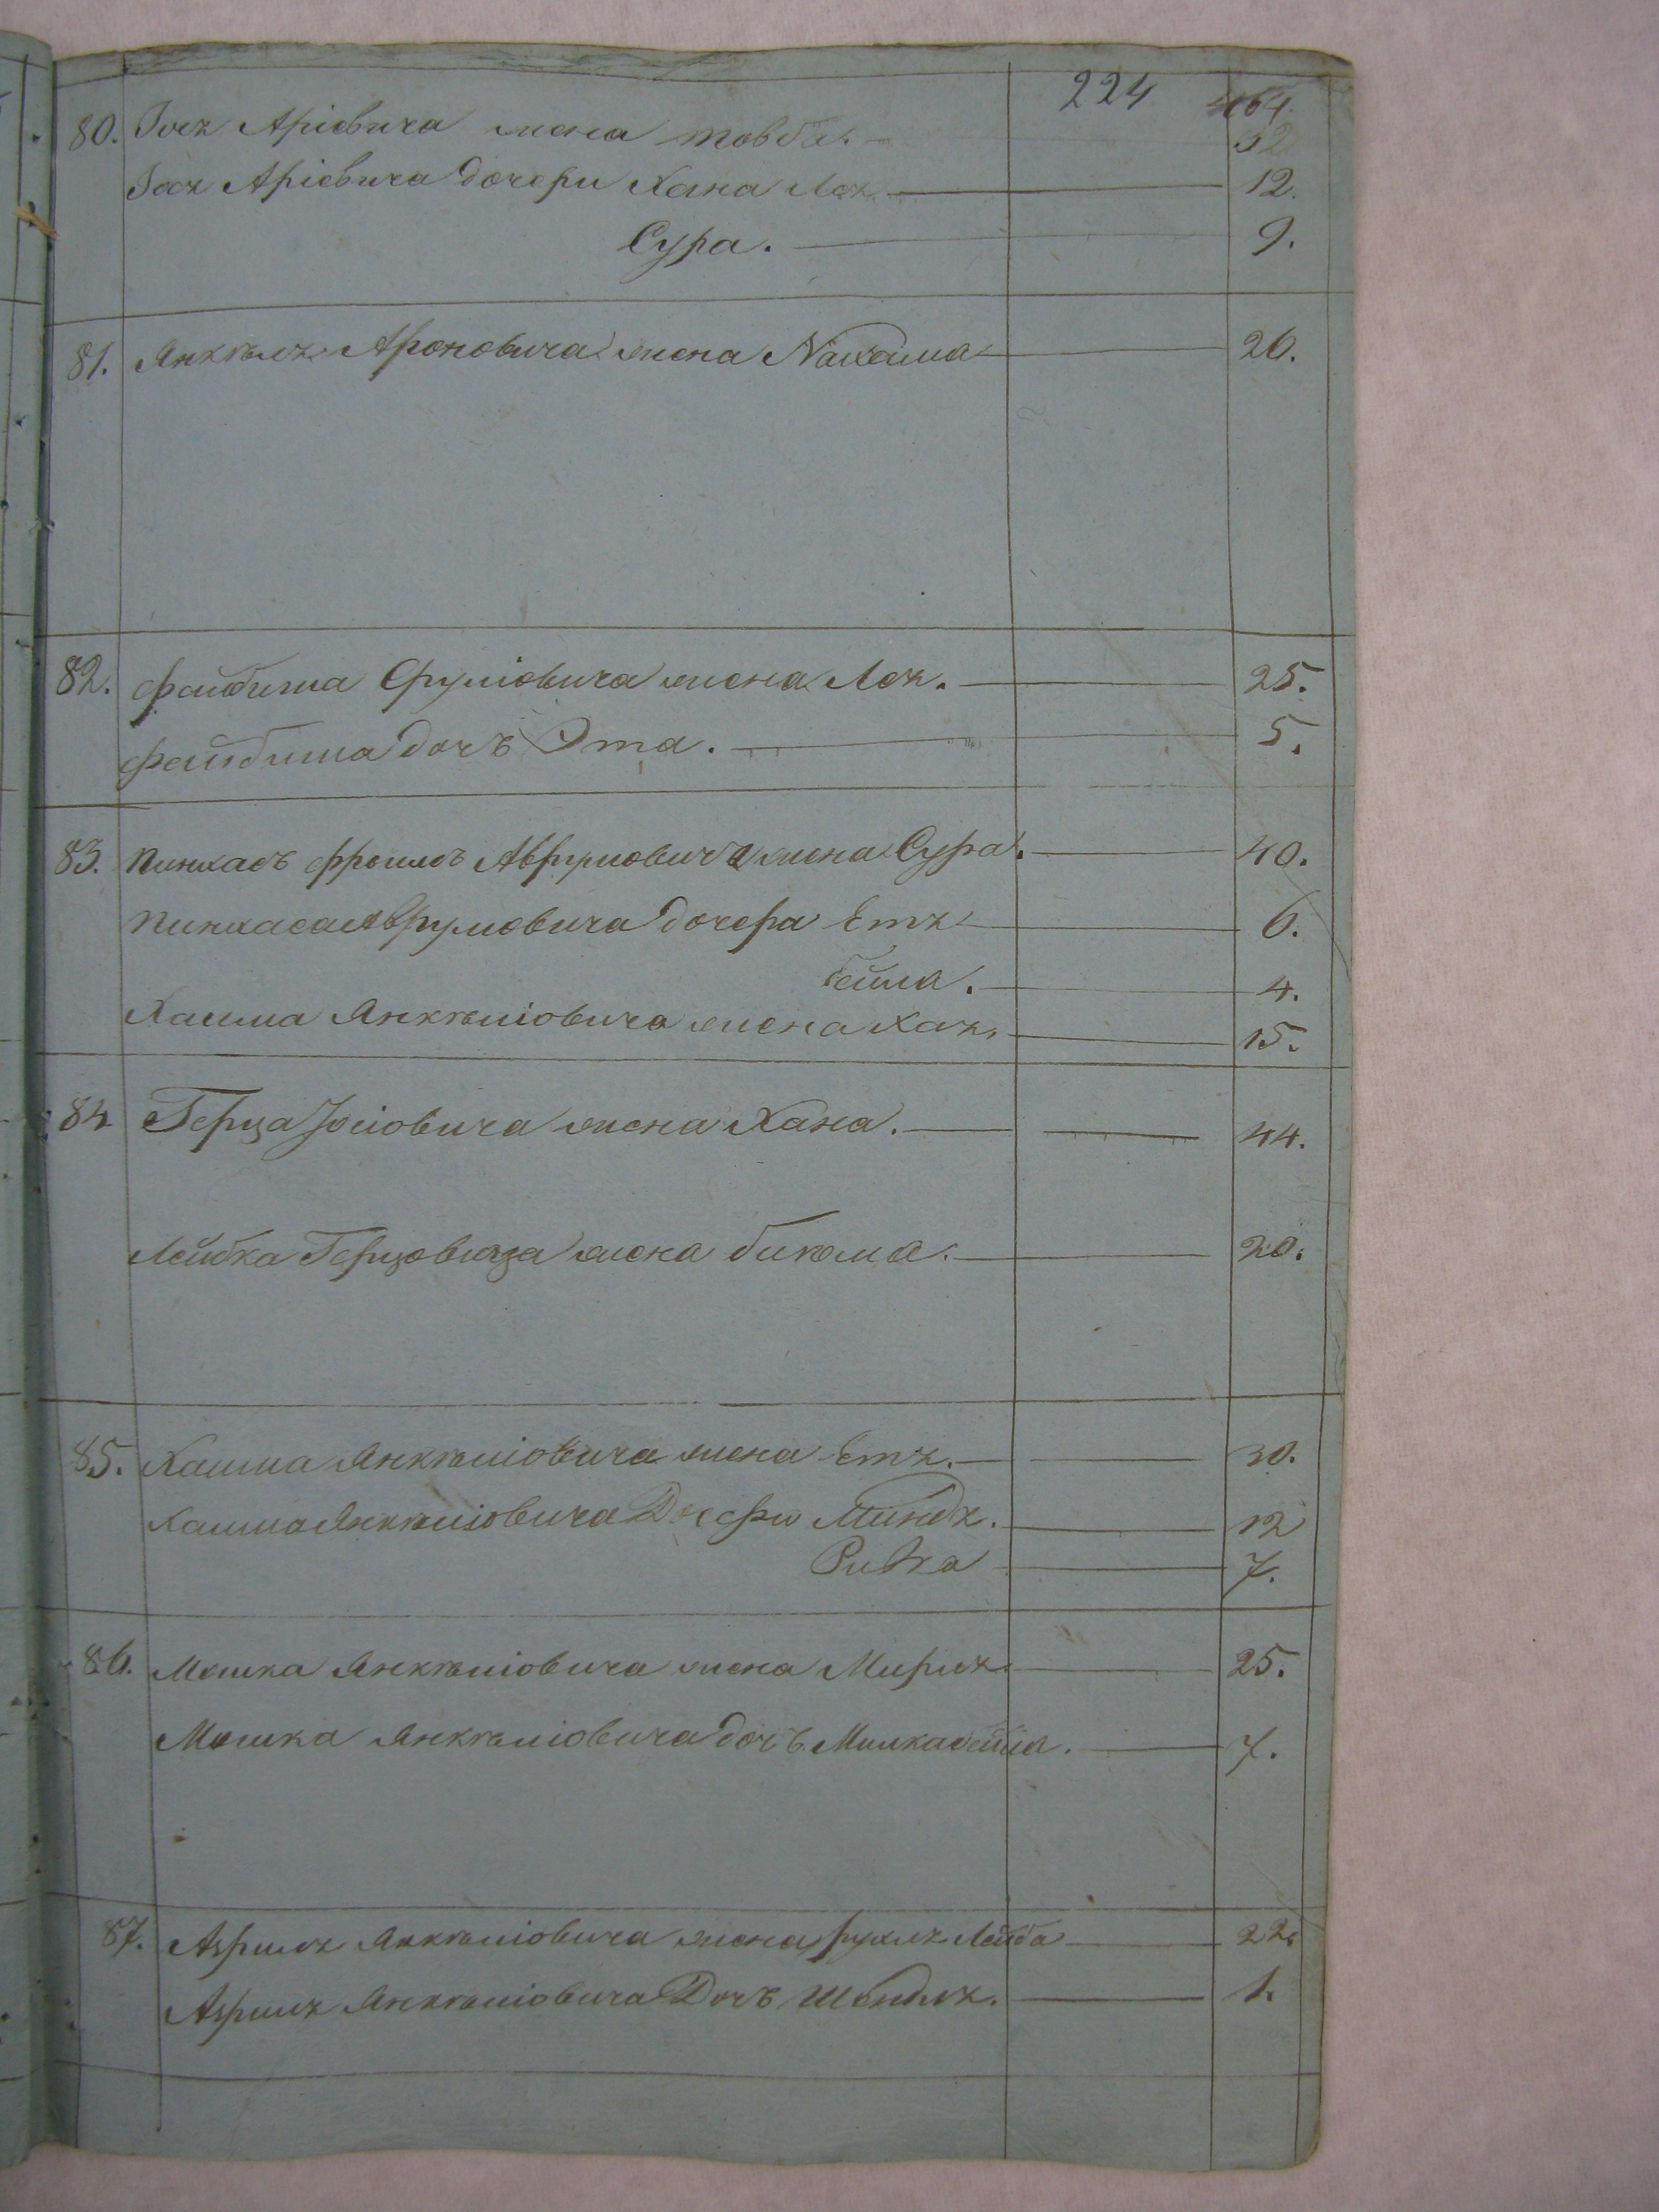 224
80. Іося Аріовича жена товба. 32
Іося Аріовича дочери Хана Лея 12.
Сура. 9.
81. Янкѣля Ароновича жена Nахама 26.
82. файвиша Сруліовича жена Лея. 25.
файвиша дочь Эта. 5.
83. пинхасъ фроимъ Аврумовича жена Сура. 40.
пинхаса Аврумовича дочери Етя 6.
бейла. 4.
Хаима Янкѣліовича жена Хая. 15.
84 Герца Іосіовича жена Хана. 44.
Лейбка Герцовича жена 20.
85. Хаима Янкѣліовича жена Етя. 30.
Хаима Янкѣліовича Дочери Миндя. 12
Ривка 7.
86. Мошка Янкѣліовича жена Мирля 25.
Мошка Янкѣліовича дочь Милкабейла. 7.
87. Янкѣліовича жена рухля Лейба 22.
Янкѣліовича Дочь Шендля. 1.